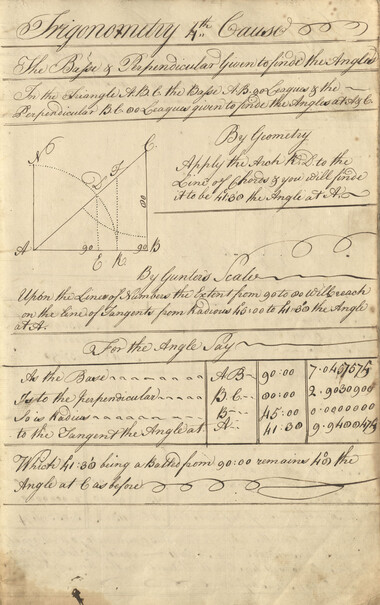 Trigonometry 4th Cause
The Base & Perpendicular Given to finde the Angles
In the Triangle A B C the Base A B 90 Leagues & the
Perpendicular B C 80 Leagues given to finde the Angles at A & C
By Geometry
Apply the Arch K D to the
Line of Chords & you will finde
it to be 41:30 the Angle at A
N
C
D
F
80
A
90
90
B
E
K
By Gunters Scale
Upon the Line of Numbers the Extent from 90 to 80 will reach
on the line of Tangents from Radious 45:00 to 41:30 the Angle
at A
For the Angle Say
As the Base A B 90:00
Is to the perpendicular B C 80:00 2.9030900
So is Radius B 45:00 0.0000000
to the Tangent the Angle at A 41:30
Which 41:30 being from 90:00 remains the
Angle at C as before